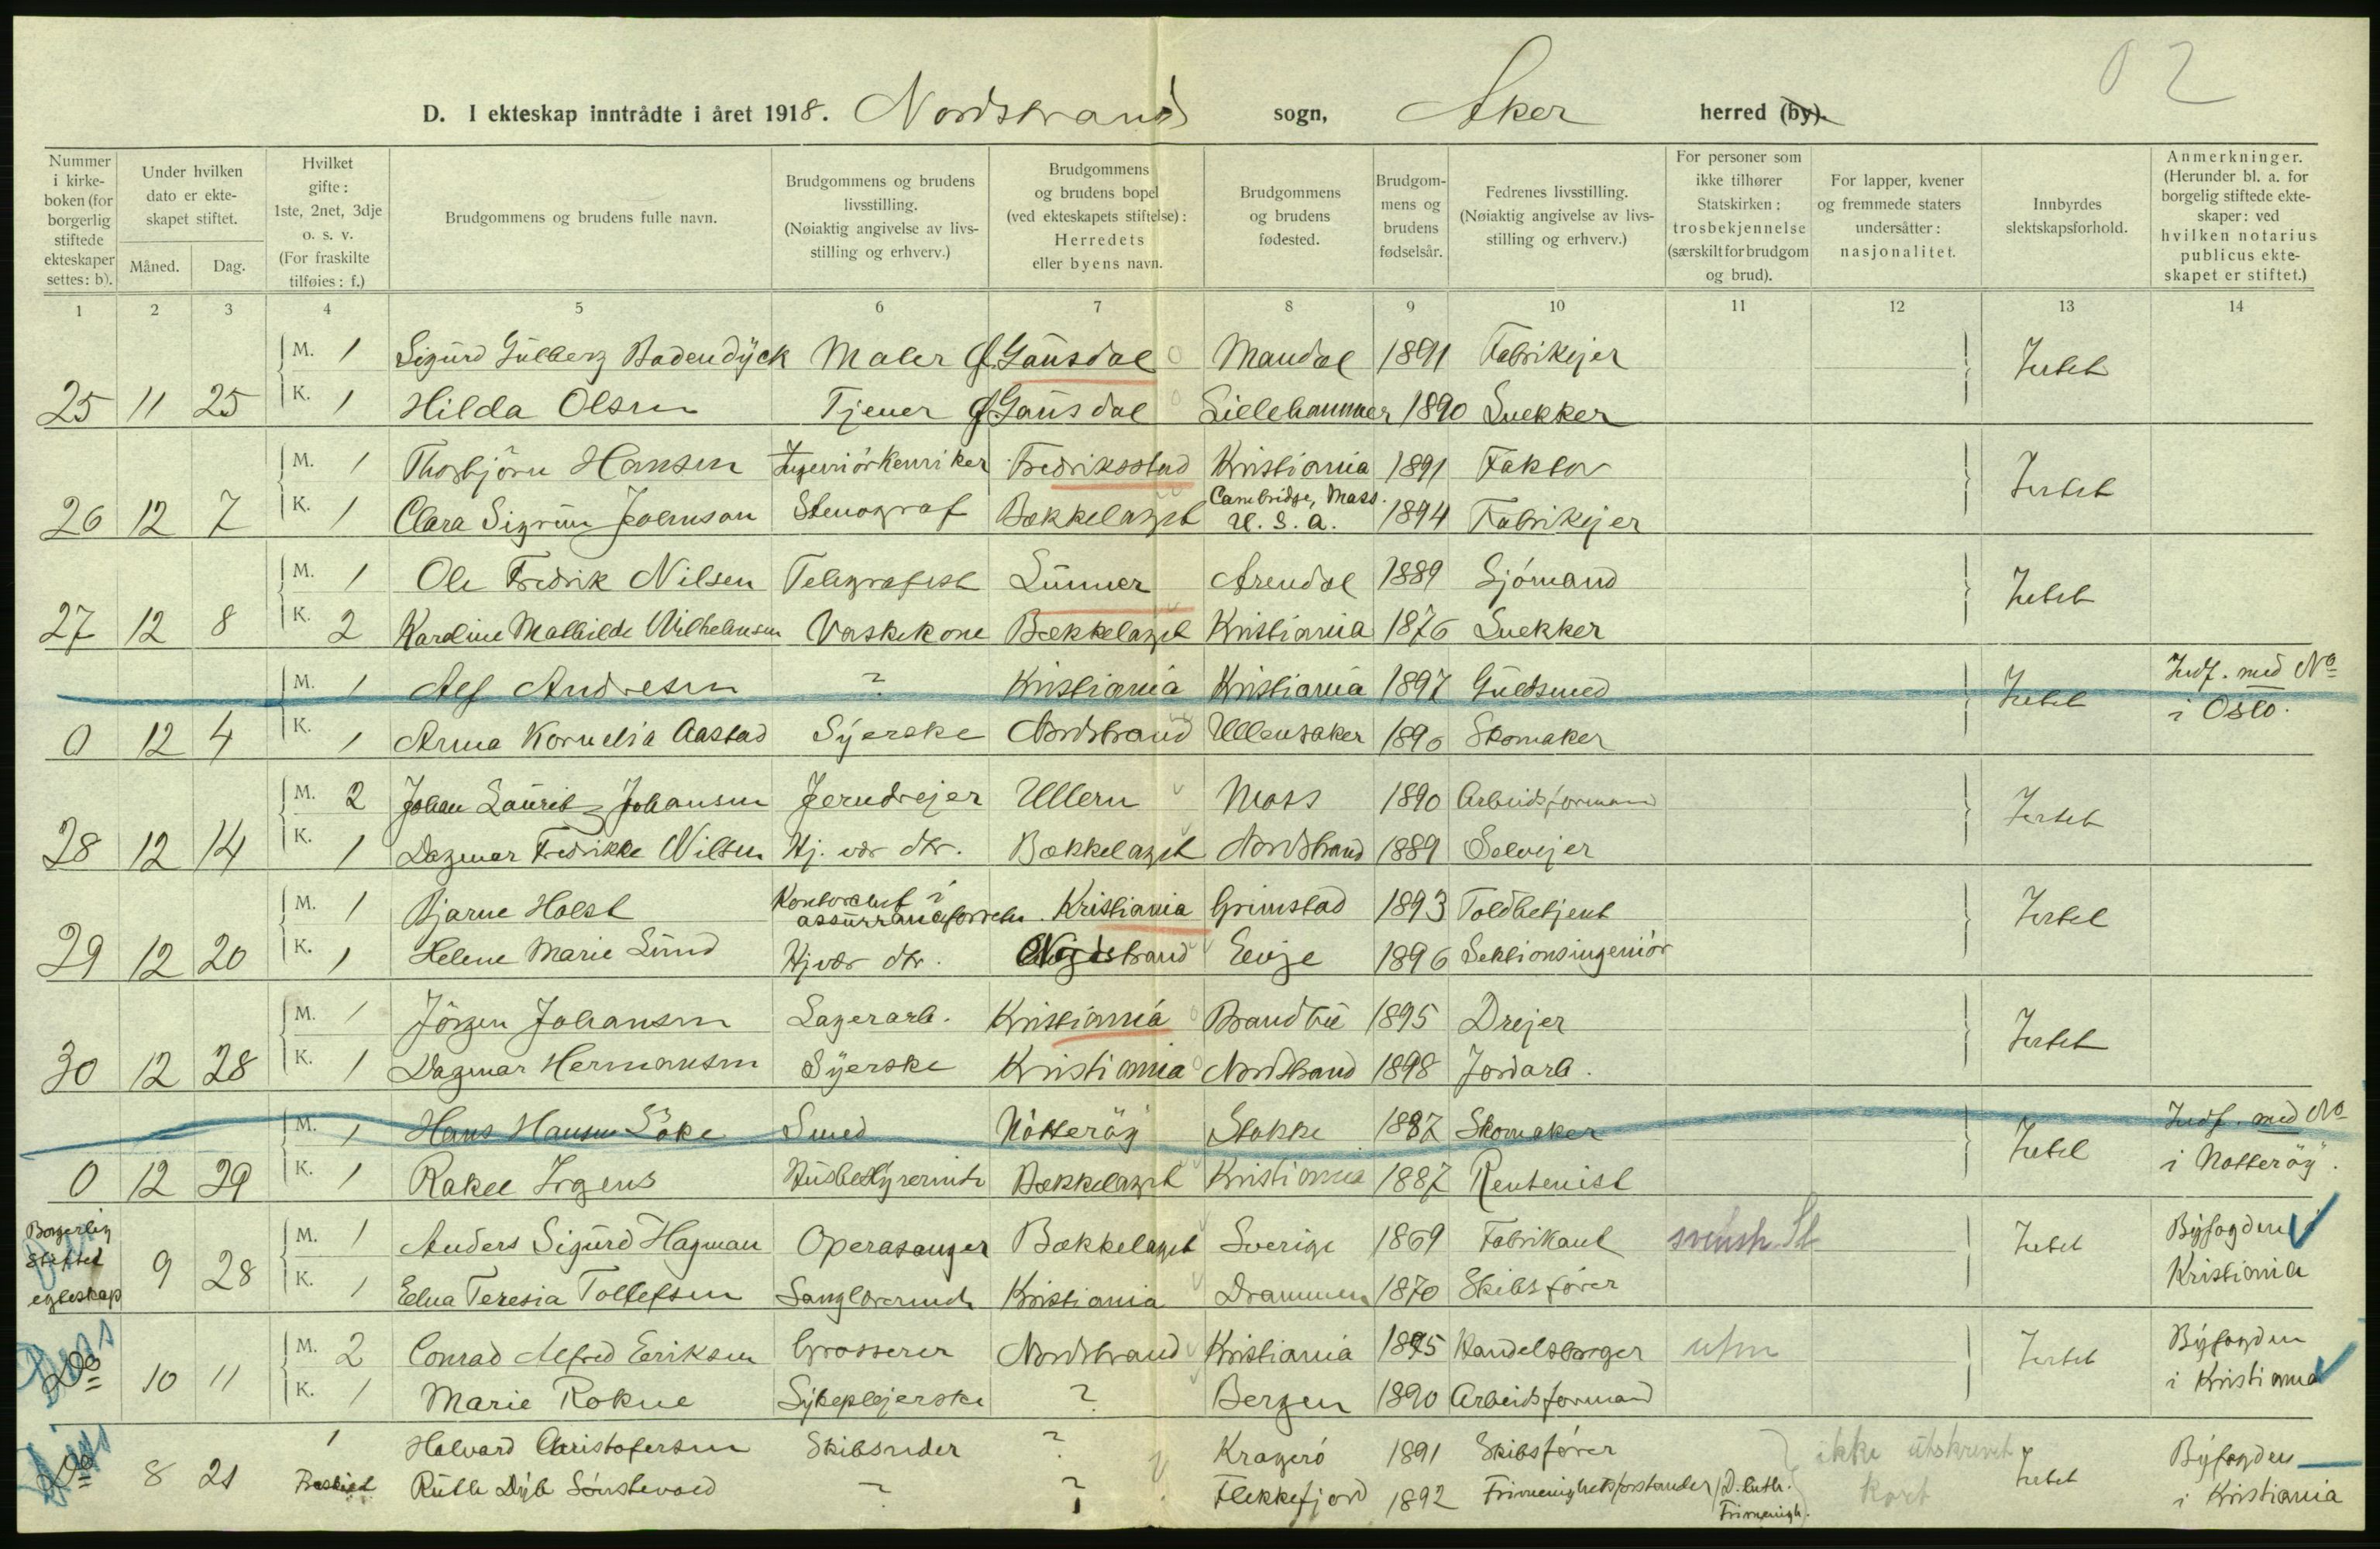 02
D. I ekteskap inntrådte i året 1918. Nordstrand sogn, Aker herred (by).
Nummer i kirkeboken (for borgerlig stiftede ekteskaper settes: b).
Under hvilken dato er ekteskapet stiftet.
Måned.
Dag.
Hvilket gifte: 1ste, 2net, 3dje o. s. v. (For fraskilte tilføies: f.)
Brudgommens og brudens fulle navn.
Brudgommens og brudens livsstilling. (Nøiaktig angivelse av livsstilling og erhverv.)
Brudgommens og brudens bopel (ved ekteskapets stiftelse): Herredets eller byens navn.
Brudgommens og brudens fødested.
Brudgommens og brudens fødselsår.
Fedrenes livsstilling. (Nøiaktig angivelse av livsstilling og erhverv.)
For personer som ikke tilhører Statskirken: trosbekjennelse (særskilt for brudgom og brud).
For lapper, kvener og fremmede staters undersåtter: nasjonalitet.
Innbyrdes slektskapsforhold.
Anmerkninger. (Herunder bl. a. for borgelig stiftede ekteskaper: ved hvilken notarius publicus ekteskapet er stiftet.)
1 2 3 4 5 6 7 8 9 10 11 12 13 14
M. 1 Sigurd Gulberg Badendyck Maler Ø. Gausdal Mandal 1891 Fabrikejer Intet
25 11 25 K. 1 Hilda Olsen Tjener Ø Gausdal Lillehammer 1890 Snekker
M. 1 Thorbjörn Hansen Ingeniörkemiker Fredriksstad Kristiania 1891 Faktor Intet
26 12 7 K. 1 Clara Sigrun Johnson Stenograf Bækkelaget Cambridge, Mass. U. S. A. 1894 Fabrikejer
M. 1 Ole Fredrik Nilsen Telegrafist Lunner Arendal 1889 Sjómand Intet
27 12 8 K. 2 Karoline Mathilde Wilhelmsen Vaskekone Bækkelaget Kristiania 1876 Snekker
M. 1 Alf Andresen ? Kristiania Kristiania 1897 Guldsmed Intet Indf. med No
0 12 4 K. 1 Anna Kornelia Aastad Syerske Nordstrand Ullensaker 1896 Skomaker i Oslo.
M. 2 Johan Lauritz Johansen Jerndrejer Ullern Moss 1890 Arbeidsformand Intet
28 12 14 K. 1 Dagmar Fredrikke Nilsen Hj. vær dtr. Bækkelaget Nordstrand 1889 Selvejer
M. 1 Bjarne Holst Kontorchef i assurranceforretn. Kristiania Grimstad 1893 Toldbetjent Intet
29 12 20 K. 1 Helene Marie Lund Hjvær dtr. Nordstrand Evje 1896 Sektionsingeniór
M. 1 Jörgen Johansen Lagerarb. Kristiania Brandbu 1895 Drejer Intet
30 12 28 K. 1 Dagmar Hermansen Syerske Kristiania Nordstrand 1898 Jordarb.
M. 1 Hans Hansen Söke Smed Nötteröy Stokke 1887 Skomaker Intet Indf. med No
0 12 29 K. 1 Rakel Irgens Husbestyrerinde Bækkelaget Kristiania 1887 Rentenist i Nötteröy.
Borgerlig stiftet egteskap 9 28 M. 1 Anders Sigurd Hagman Operasanger Bækkelaget Sverige 1869 Fabrikant svensk St Intet Byfogden
K. 1 Elna Teresia Tollefsen Sanglærerinde Kristiania Drammen 1870 Skibsfører Kristiania
Do 10 11 M. 2 Conrad Alfred Eriksen Grosserer Nordstrand Kristiania 1875 Handelsborger utm Intet Byfogden
K. 1 Marie Rokne Sykeplejerske ? Bergen 1890 Arbeidsformand i Kristiania
Do 8 21 1 Halvard Christofersen Skibsreder ? Kragerö 1891 Skibsfører ikke utskrevet Intet Byfogden
Ruth Dyb Sönstevold ? ? Flekkefjord 1892 Frimenighetsforstander D. luth. Frimenigh. kort i Kristiania